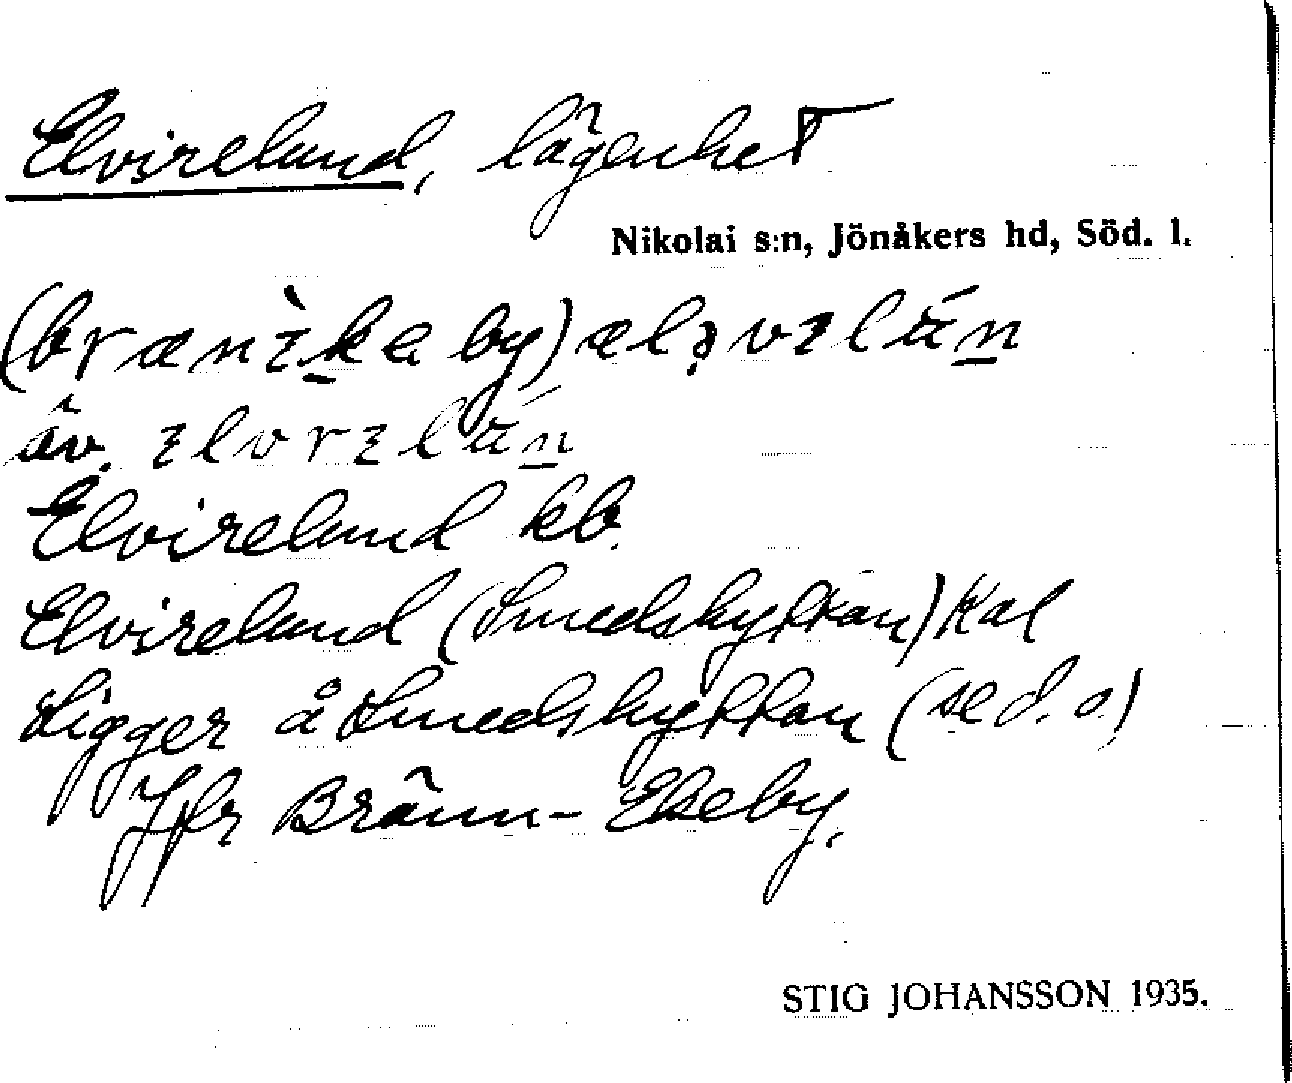 Elvirelund, lägenhet
Nikolai s:n, Jönåkers hd, Söd. l.
(brænɩ̀ka by)
äv.
Elvirelund kb.
Elvirelund (Smedshyttan) Kal
Ligger å Smedshyttan (se d. o.)
Jfr Bränn-Ekeby.
STIG JOHANSSON 1935.